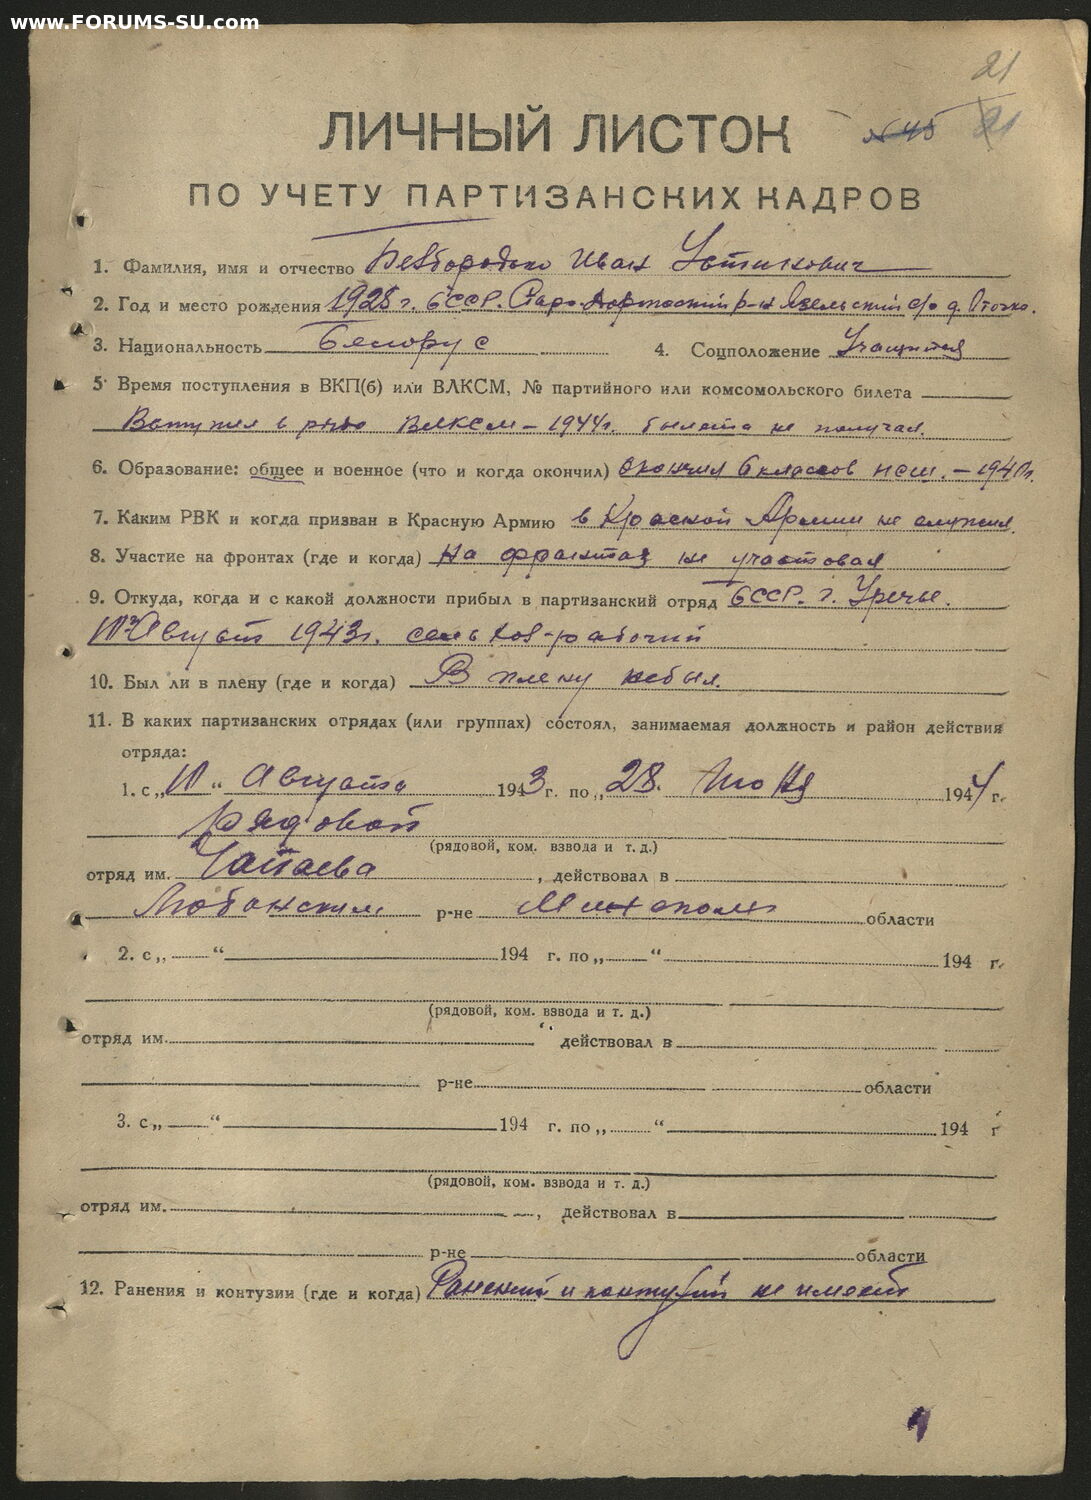 www.FORUMS-SU.com
21
№ 45 21
ЛИЧНЫЙ ЛИСТОК
ПО УЧЕТУ ПАРТИЗАНСКИХ КАДРОВ
1. Фамилия, имя и отчество Безбородько Иван Устинович
2. Год и место рождения 1925 г. БССР. Старо-Дорожский р-н Язельский с/с д. Оточка.
3. Национальность Белорус 4. Соцположение Учащийся
5. Время поступления в ВКП(б) или ВЛКСМ, № партийного или комсомольского билета
Вступил в ряды ВЛКСМ – 1944г. билета не получал.
6. Образование: общее и военное (что и когда окончил) окончил 6 классов нсш. – 1940г.
7. Каким РВК и когда призван в Красную Армию в Красной Армии не служил.
8. Участие на фронтах (где и когда) На фронтах не участвовал
9. Откуда, когда и с какой должности прибыл в партизанский отряд БССР. г. Уречье.
Август 1943г. сельхоз-рабочий
10. Был ли в плену (где и когда) В плену небыл.
11. В каких партизанских отрядах (или группах) состоял, занимаемая должность и район действия
отряда:
1. с „10“ Августа 1943 г. по „28. Июня 1944 г.
Рядовой
(рядовой, ком. взвода и т. д.)
отряд им. Чапаева, действовал в
Любанским р-не Минской области
2. с „ “ 194 г. по „ “ 194 г.
(рядовой, ком. взвода и т. д.)
отряд им. действовал в
р-не области
3. с „ “ 194 г. по „ “ 194 г
(рядовой, ком. взвода и т. д.)
отряд им. , действовал в
р-не области
12. Ранения и контузии (где и когда) Ранений и контузий не имеет